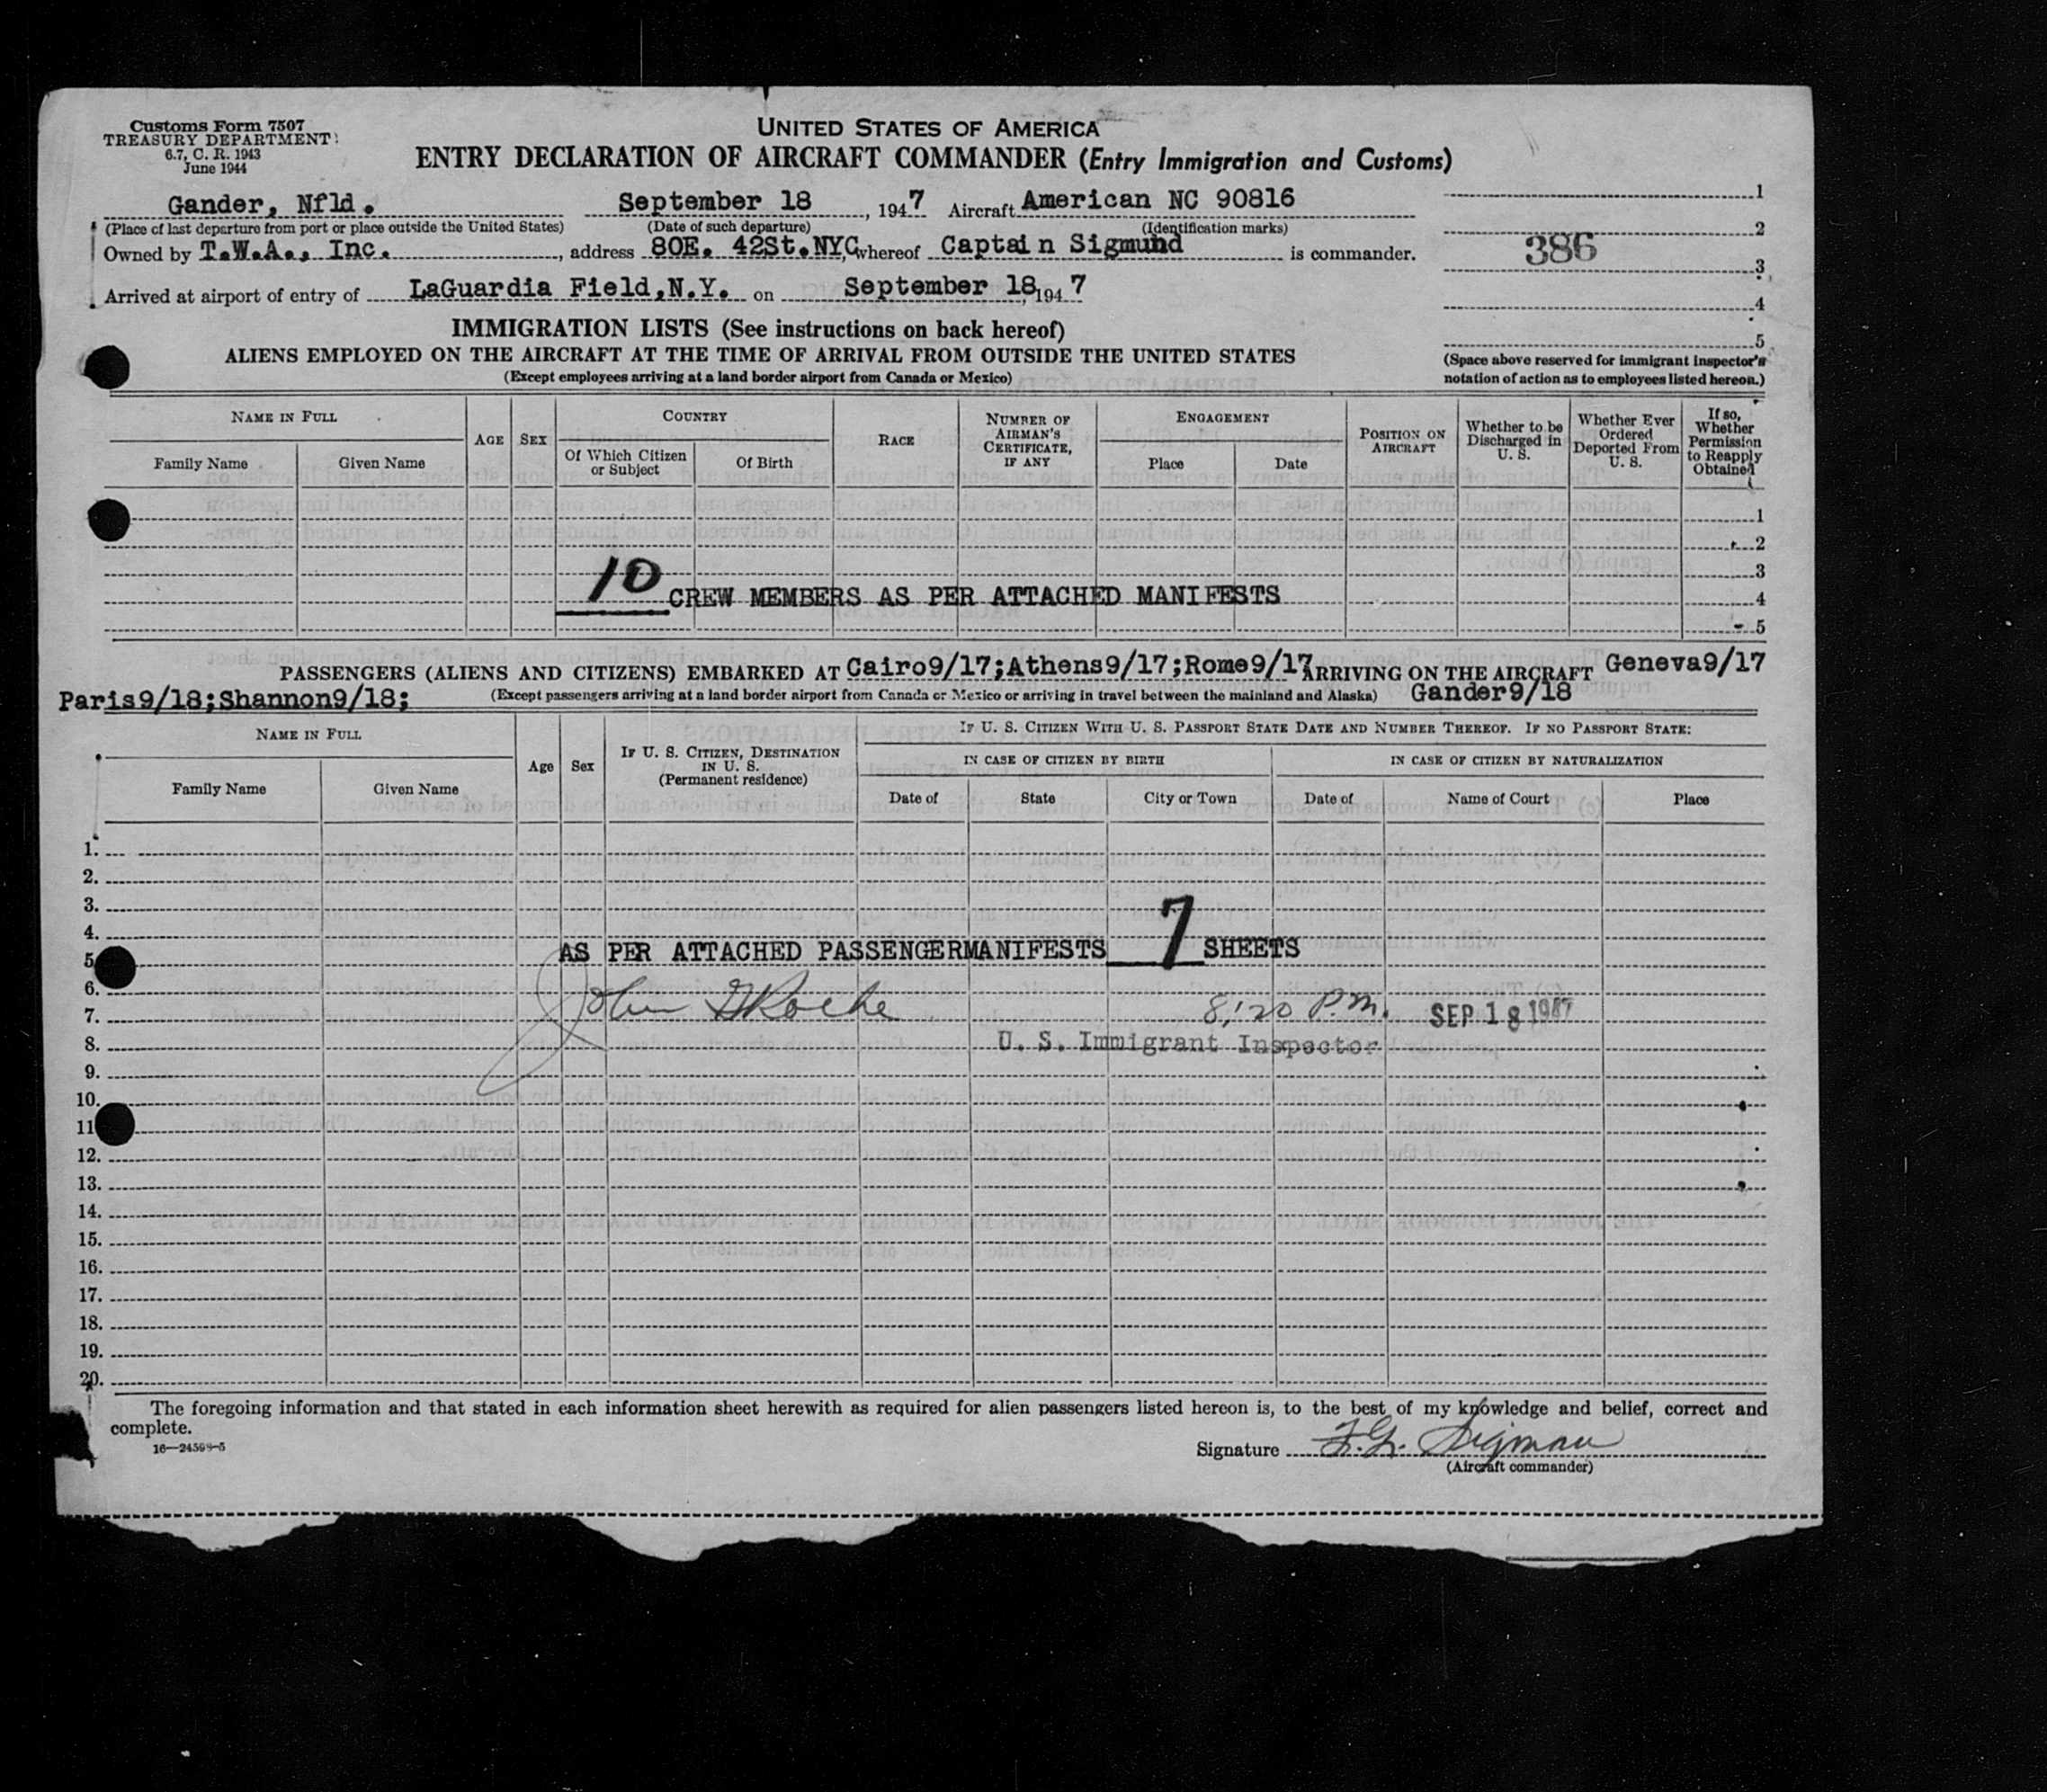 Customs Form 7507
TREASURY DEPARTMENT
6.7, C. R. 1943
June 1944
UNITED STATES OF AMERICA
ENTRY DECLARATION OF AIRCRAFT COMMANDER (Entry Immigration and Customs)
Gander, Nfld. September 18, 1947 Aircraft American NC 90816
(Place of last departure from port or place outside the United States) (Date of such departure) (Identification marks)
Owned by T.W.A., Inc., address 80E. 42St. NYC, whereof Captain Sigmund is commander.
Arrived at airport of entry of LaGuardia Field, N.Y. on September 18, 1947
1
2
386
3
4
5
(Space above reserved for immigrant inspector's
notation of action as to employees listed hereon.)
IMMIGRATION LISTS (See instructions on back hereof)
ALIENS EMPLOYED ON THE AIRCRAFT AT THE TIME OF ARRIVAL FROM OUTSIDE THE UNITED STATES
(Except employees arriving at a land border airport from Canada or Mexico)
NAME IN FULL
Family Name
Given Name
AGE
SEX
COUNTRY
Of Which Citizen
or Subject
Of Birth
RACE
NUMBER OF
AIRMAN'S
CERTIFICATE,
IF ANY
ENGAGEMENT
Place
Date
POSITION ON
AIRCRAFT
Whether to be
Discharged in
U. S.
Whether Ever
Ordered
Deported From
U. S.
If so,
Whether
Permission
to Reapply
Obtained
1
2
3
10 CREW MEMBERS AS PER ATTACHED MANIFESTS
4
5
PASSENGERS (ALIENS AND CITIZENS) EMBARKED AT Cairo9/17;Athens9/17;Rome9/17 ARRIVING ON THE AIRCRAFT Geneva9/17
Paris9/18;Shannon9/18; (Except passengers arriving at a land border airport from Canada or Mexico or arriving in travel between the mainland and Alaska) Gander9/18
NAME IN FULL
Family Name
Given Name
Age
Sex
IF U. S. CITIZEN, DESTINATION
IN U. S.
(Permanent residence)
IF U. S. CITIZEN WITH U. S. PASSPORT STATE DATE AND NUMBER THEREOF. IF NO PASSPORT STATE:
IN CASE OF CITIZEN BY BIRTH
IN CASE OF CITIZEN BY NATURALIZATION
Date of
State
City or Town
Date of
Name of Court
Place
1.
2.
3.
4.
AS PER ATTACHED PASSENGERMANIFESTS 7 SHEETS
5
6.
John G Roche 8:20 P.M. SEP 18 1947
7.
U. S. Immigrant Inspector
8.
9.
10.
11
12.
13.
14.
15.
16.
17.
18.
19.
20.
The foregoing information and that stated in each information sheet herewith as required for alien passengers listed hereon is, to the best of my knowledge and belief, correct and
complete.
Signature F.G. Sigman
(Aircraft commander)